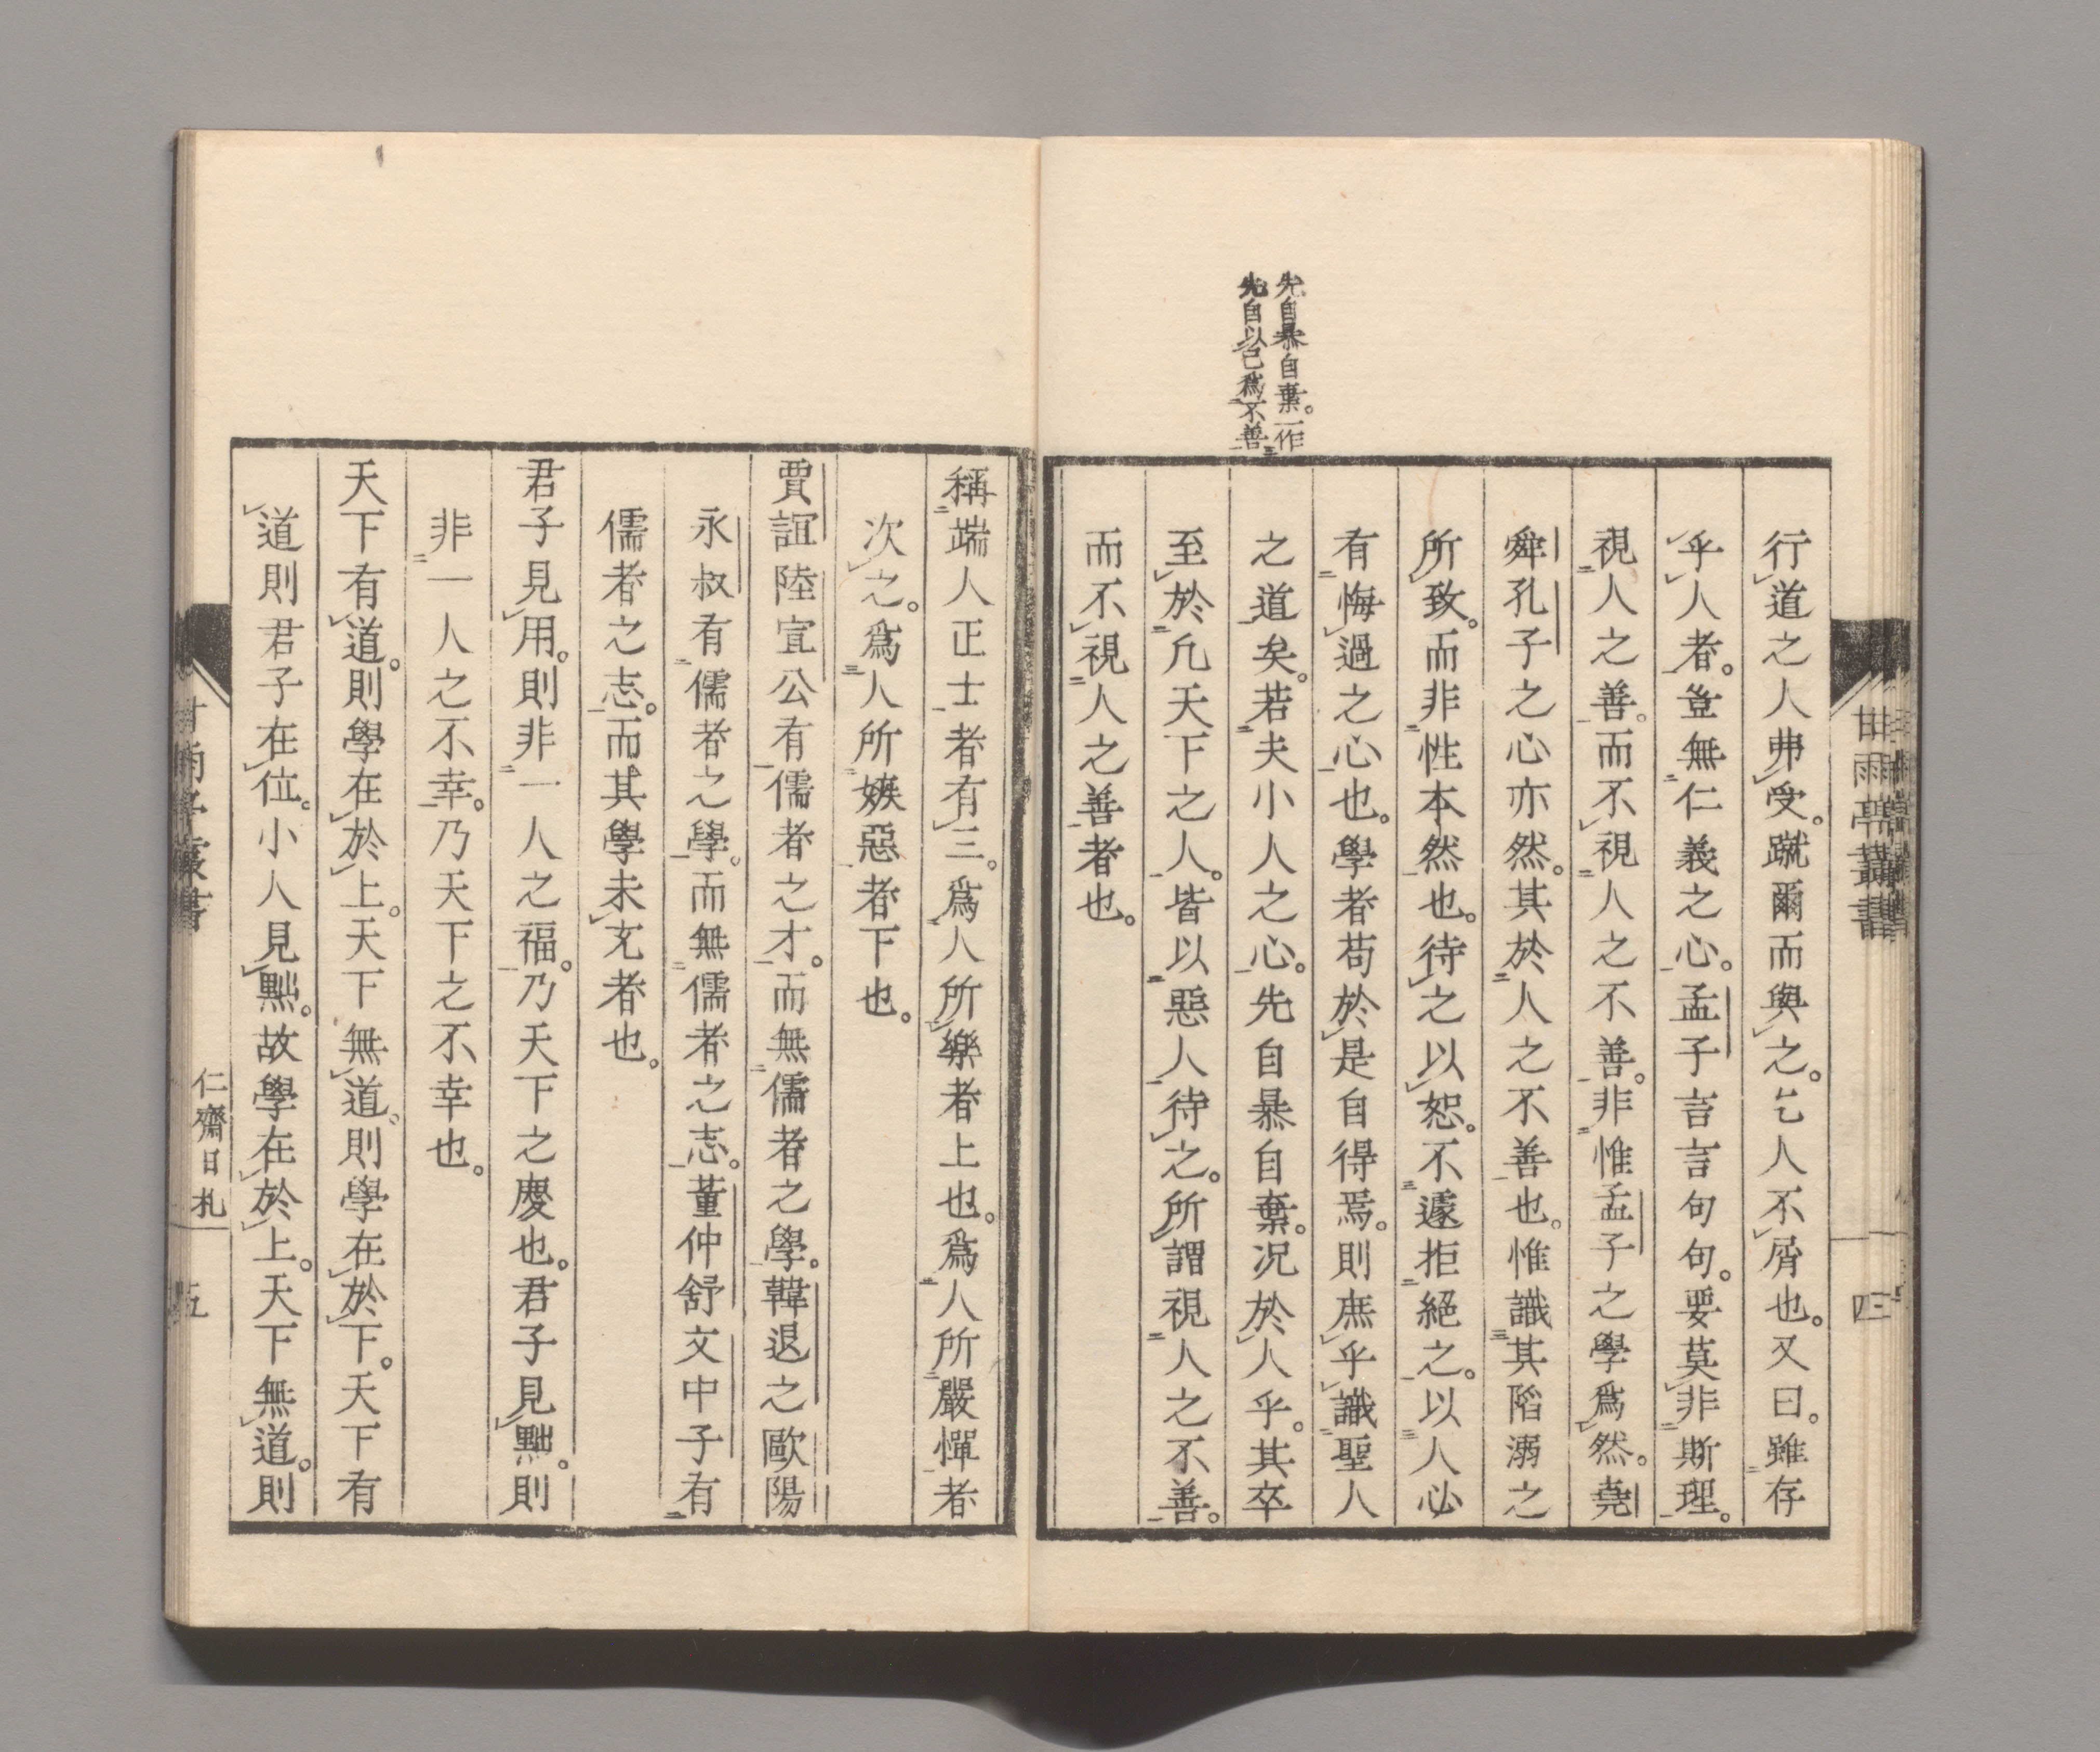 先自暴自棄。一作
先自以己爲不善
行道之人弗受。蹴爾而與之。乞人不屑也。又曰。雖存
乎人者。豈無仁義之心。孟子言言句句。要莫非斯理。
視人之善。而不視人之不善。非惟孟子之學爲然。堯
舜孔子之心亦然。其於人之不善也。惟識其陷溺之
所致。而非性本然也。待之以恕。不遽拒絕之。以人必
有悔過之心也。學者苟於是自得焉。則庶乎識聖人
之道矣。若夫小人之心。先自暴自棄。况於人乎。其卒
至於凡天下之人。皆以惡人待之。所謂視人之不善。
而不視人之善者也。
甘雨亭叢書
四
稱端人正士者有三。爲人所樂者上也。爲人所嚴憚者
次之。爲人所嫉惡者下也。
賈誼陸宣公有儒者之才。而無儒者之學。韓退之歐陽
永叔有儒者之學。而無儒者之志。董仲舒文中子有
儒者之志。而其學未充者也。
君子見用。則非一人之福。乃天下之慶也。君子見黜。則
非一人之不幸。乃天下之不幸也。
天下有道。則學在於上。天下無道。則學在於下。天下有
道則君子在位。小人見黜。故學在於上。天下無道。則
仁齋日札
五